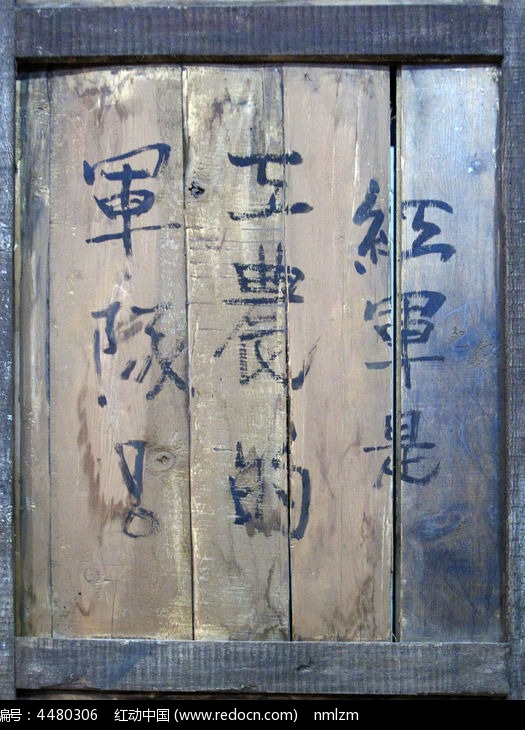 紅軍是
工農的
軍隊！
编号：4480306 红动中国 (www.redocn.com) nmlzm